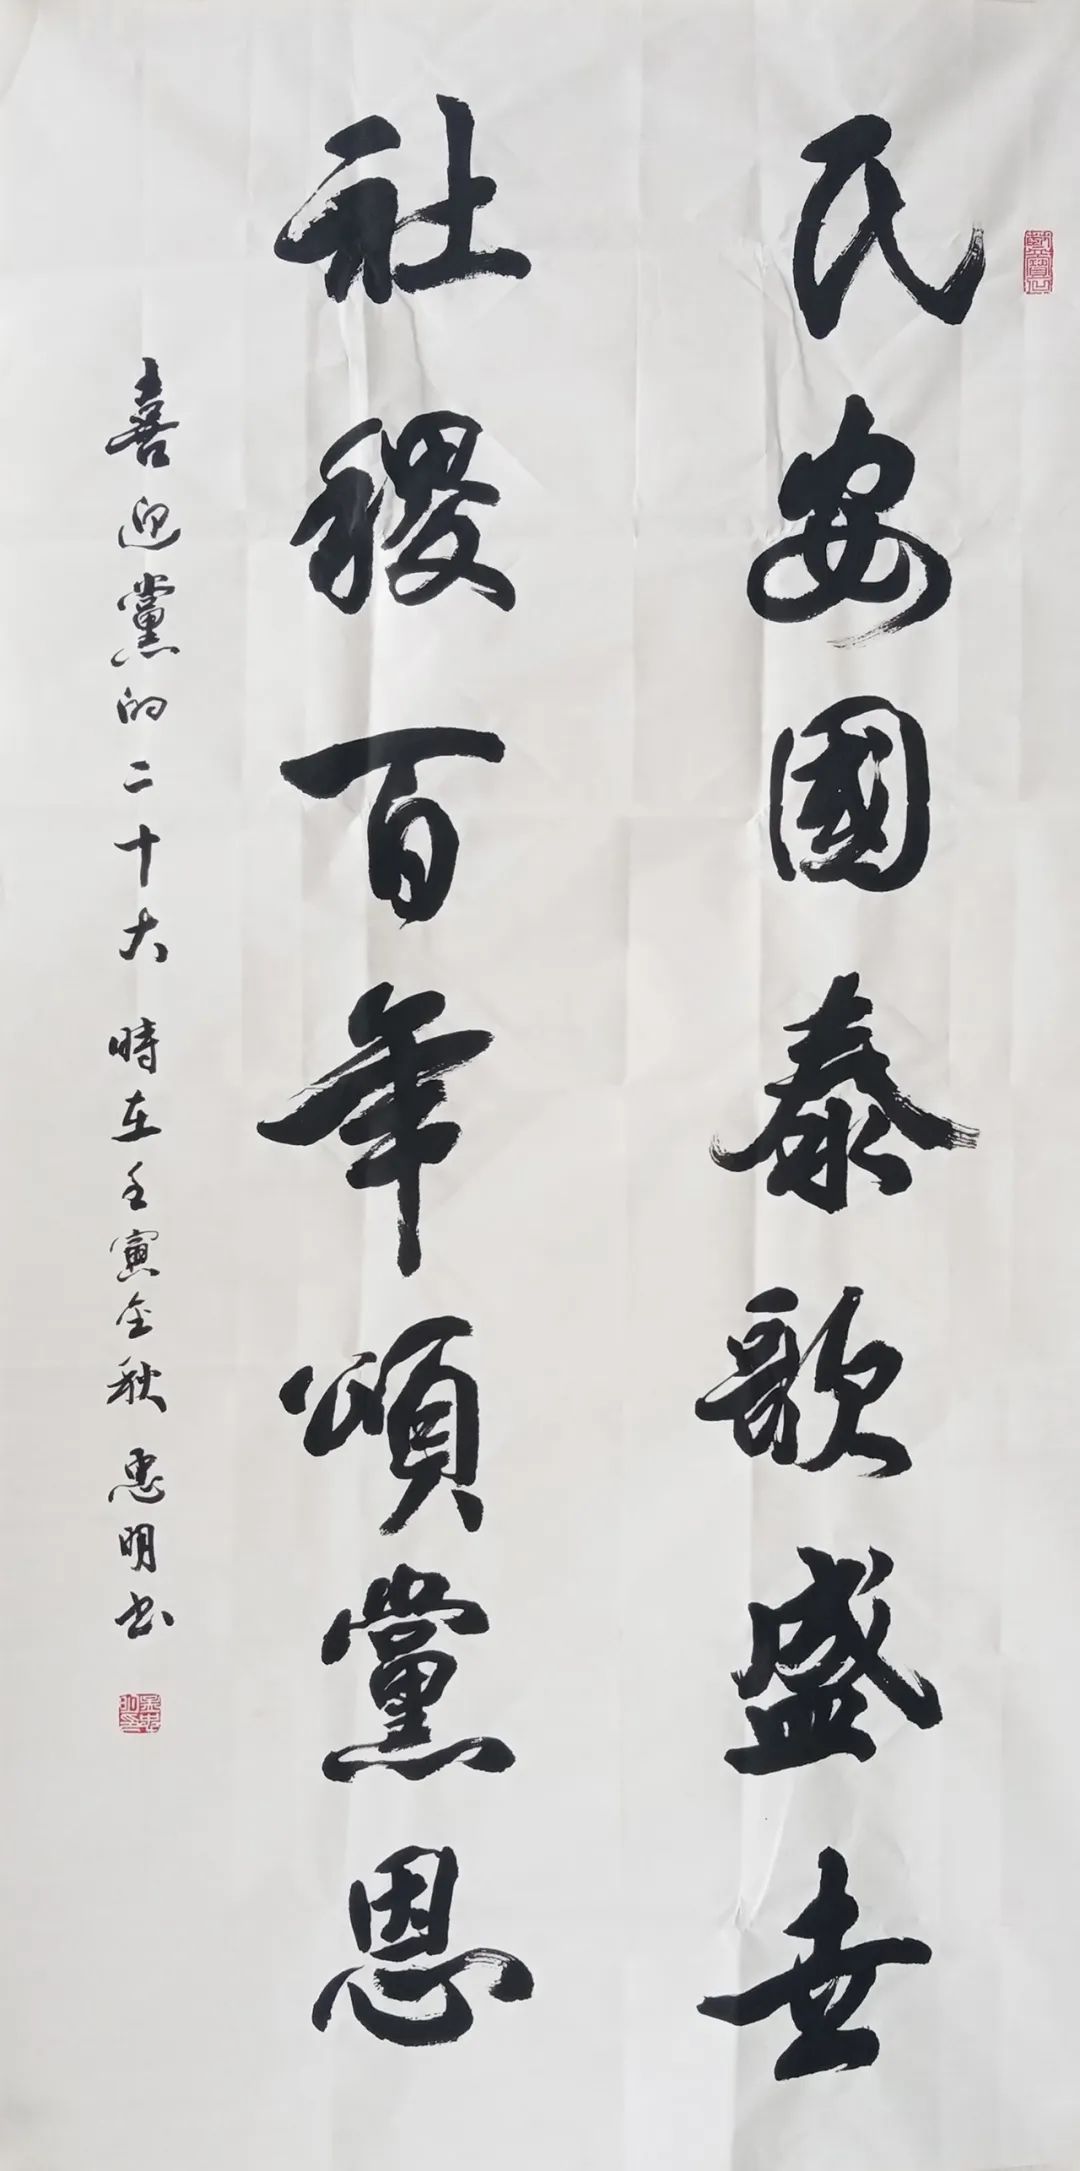 民安國泰歌盛世
社稷百年頌黨恩
喜迎黨的二十大 時在壬寅金秋 惠明书